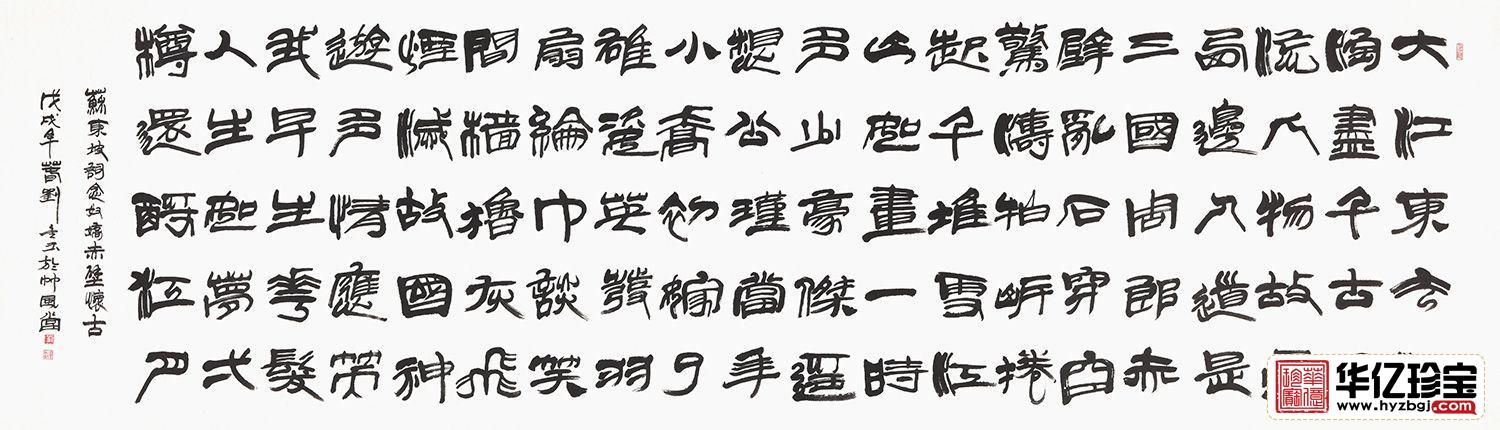 大江東去
淘盡千古
流人物故
西邊人道是
三國周郎赤
壁亂石穿空
驚濤拍岸捲
起千堆雪江
山如畫一時
多少豪傑遥
想公瑾當年
小喬初嫁了
雄姿英發羽
扇綸巾談笑
間檣櫓灰飛
煙滅故國神
遊多情應笑
我早生華髮
人生如夢弌
樽還酹江月
蘇東坡詞念奴嬌赤壁懷古
戊戌年春劉 於 風堂
华亿珍宝
www.hyzbgj.com